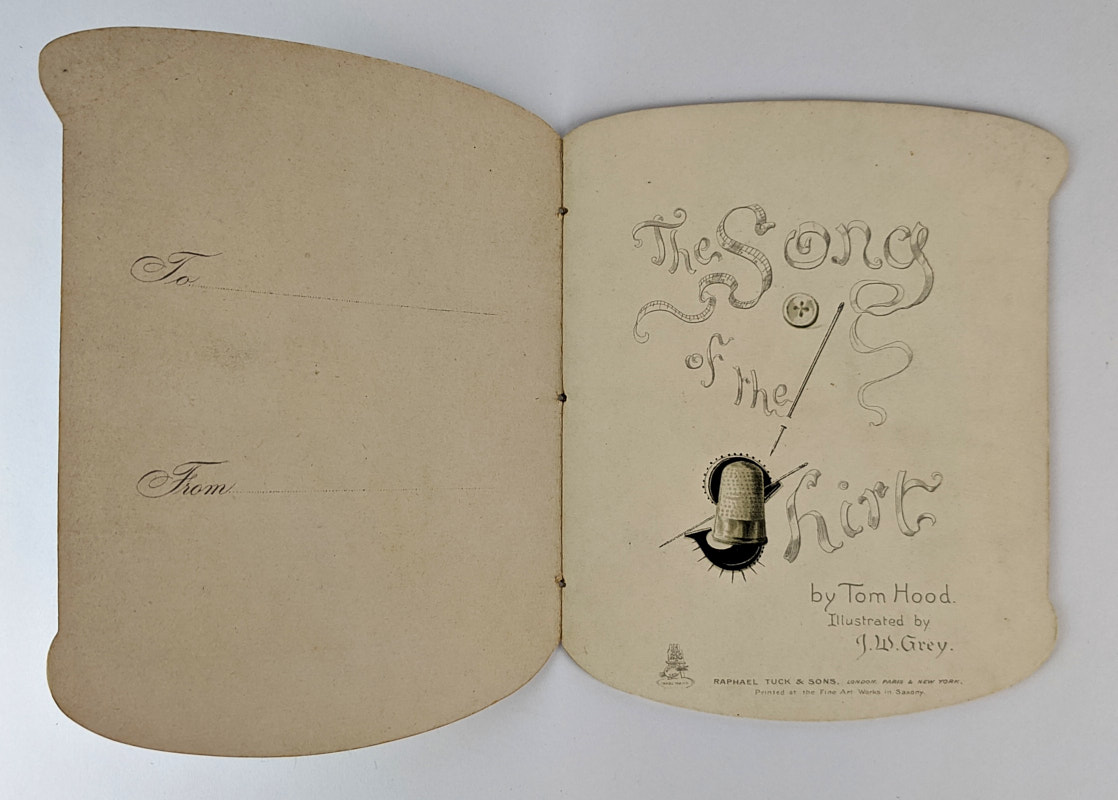 To
From
The Song
of the
Shirt
by Tom Hood.
Illustrated by
J. W. Grey.
RAPHAEL TUCK & SONS, LONDON, PARIS & NEW YORK.
Printed at the Fine Art Works in Saxony.